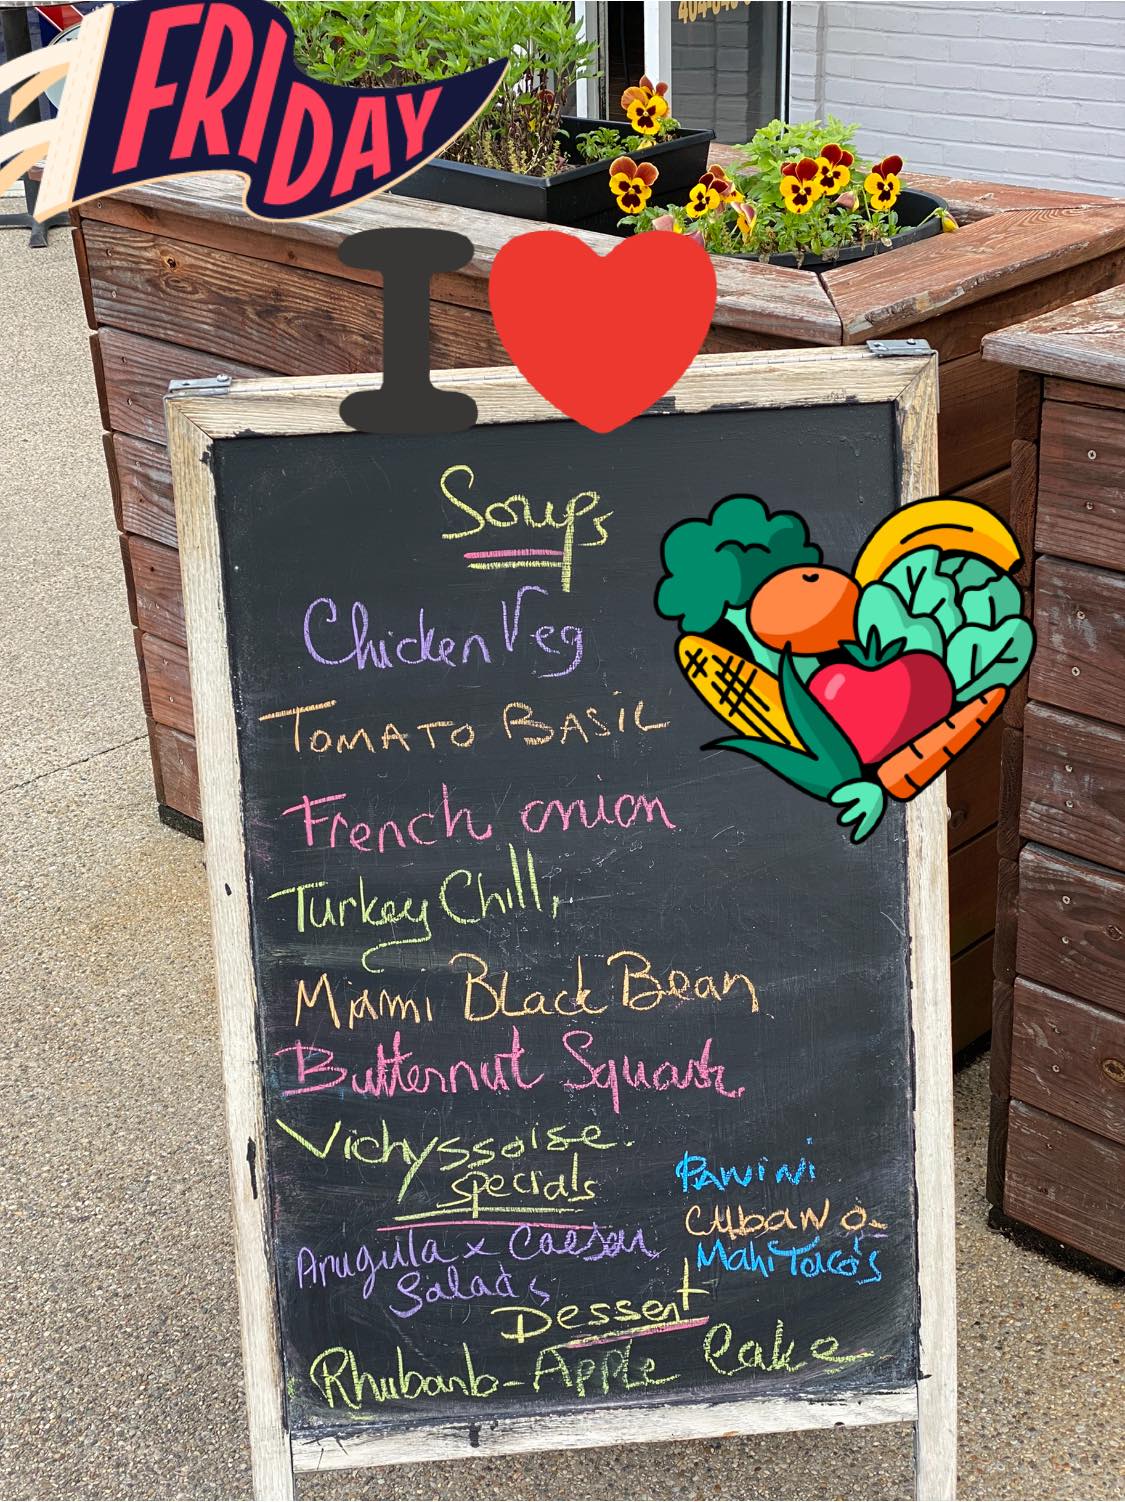 FRIDAY
I
Soups
Chicken Veg
TOMATO BASIL
French onion
Turkey Chili
Miami Black Bean
Butternut Squash
Vichyssoise.
specials
Arugula x Caesar
Salads
PANINI
CUBANO
Mahi Taco's
Dessert
Rhubarb-Apple Cake